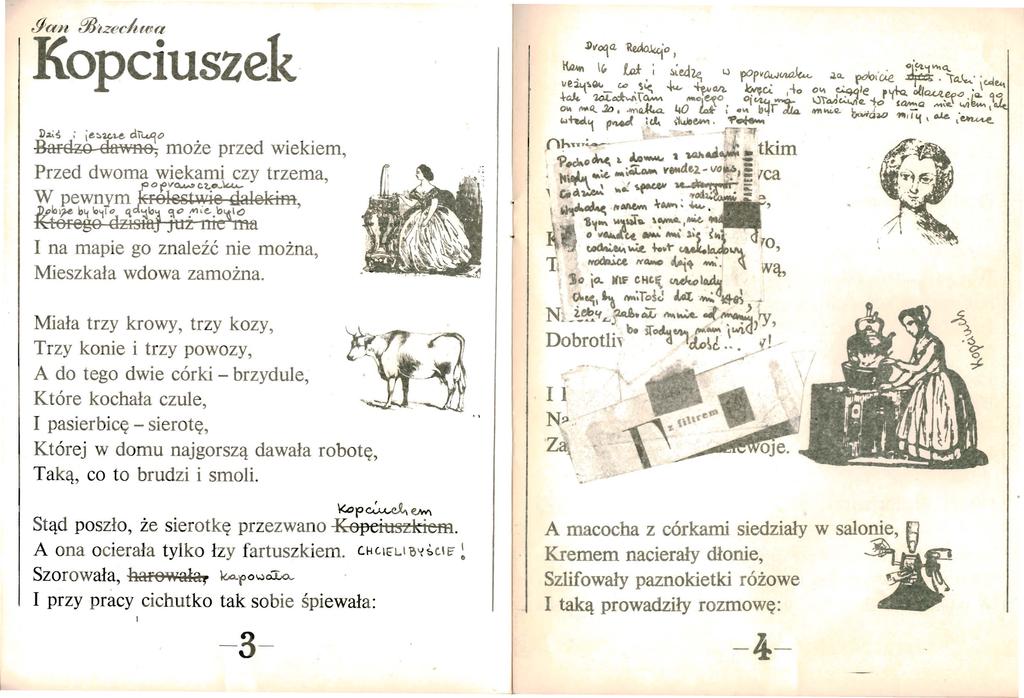 Jan Brzechwa
Kopciuszek
Dziś i jeszcze długo
Bardzo dawno, może przed wiekiem,
Przed dwoma wiekami czy trzema,
poprawczaku
W pewnym królestwie dalekim,
Dobrze by było gdyby go nie było
Którego dzisiaj już nie ma
I na mapie go znaleźć nie można,
Mieszkała wdowa zamożna.
Miała trzy krowy, trzy kozy,
Trzy konie i trzy powozy,
A do tego dwie córki – brzydule,
Które kochała czule,
I pasierbicę – sierotę,
Której w domu najgorszą dawała robotę,
Taką, co to brudzi i smoli.
Kopciuchem
Stąd poszło, że sierotkę przezwano Kopciuszkiem.
A ona ocierała tylko łzy fartuszkiem. CHCIELIBYŚCIE!
Szorowała, harowała, kapowała
I przy pracy cichutko tak sobie śpiewała:
–3–
Droga Redakcjo,
ojczyma
Mam 16 lat i siedzę w poprawczaku za pobicie ojca. Taki jeden
reżyser co się tu teraz kręci, to on ciągle pyta dlaczego ja go
tak załatwiłam mojego ojczyma. Właściwie to sama nie wiem, ale
on ma 20, matka 40 lat i on był dla mnie bardzo miły, ale jeszcze
wtedy przed ich ślubem. Potem
tkim
Pochodzę z domu z zasadami
Nigdy nie miałam rendez-vous,
Codzień na spacer ze starymi
rodzicami
Wychodzę razem tam i tu.
Bym wyszła sama, nie ma
o randce ani mi się śni
codziennie tort czekoladowy
rodzice rano dają mi
Bo ja NIE CHCĘ czekolady
Chcę, by miłość dał mi ktoś,
żeby zabrał mnie od mamy
bo słodyczy mam już
dość...
PAPIEROSÓW
Dobrotliw y!
z filtrem
Kopciuch
A macocha z córkami siedziały w salonie,
Kremem nacierały dłonie,
Szlifowały paznokietki różowe
I taką prowadziły rozmowę:
–4–